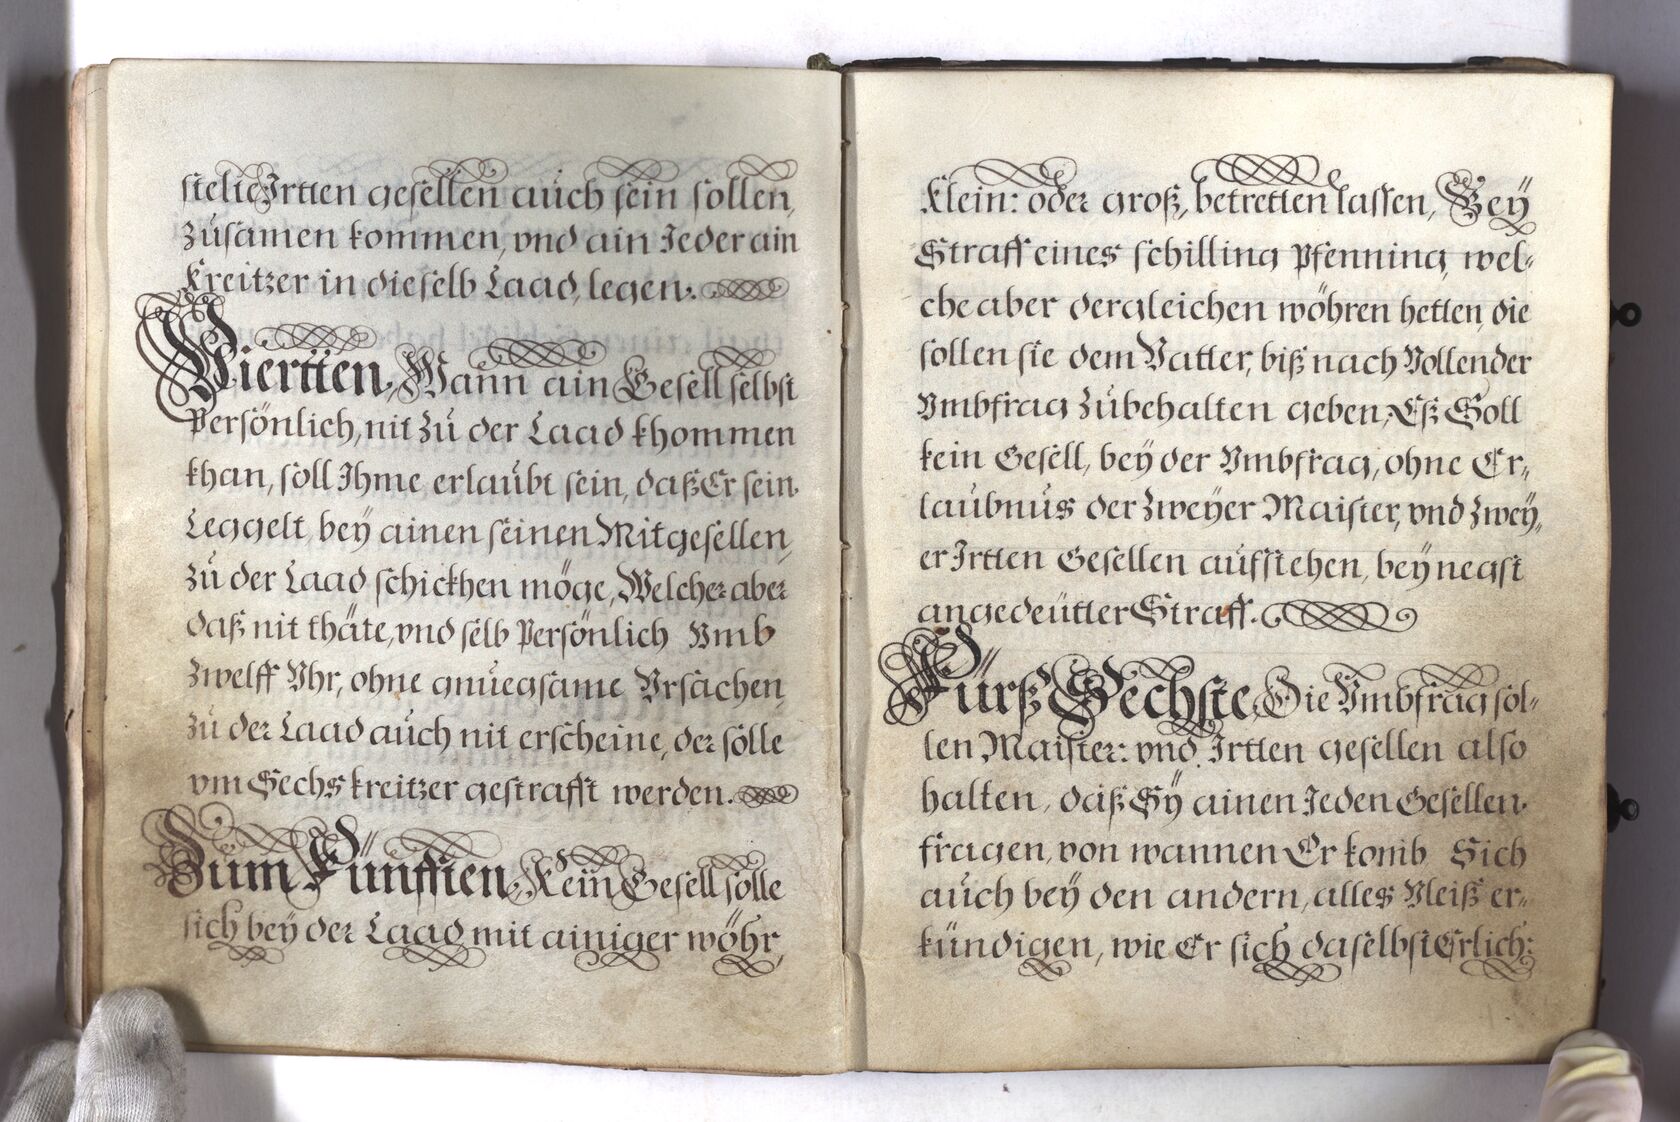 stelte Irtten gesellen auch sein sollen,
zúsamen kommen, vnd ain Jeder ain
Kreitzer in dieselb Laad, legen.
Viertten, Wann ain Gesell selbst
Persönlich, nit zú der Laad khommen
khan, soll Ihme erlaúbt sein, daß Er sein
Leggelt, bey ainen seinen Mitgesellen,
zú der Laad schickhen möge, Welcher aber
daß nit thäte, vnd selb Persönlich Vmb
Zwelff Vhr, ohne gnúegsame Vrsachen,
zú der Laad aúch nit erscheine, der sölle
vm Sechs kreitzer gestrafft werden.
Zum Fünfften, Kein Gesell sölle
sich bey der Laad mit ainiger wöhr,
Klein: oder groß, betretten lassen, Bey
Straff eines schilling Pfenning, wel-
che aber dergleichen wöhren hetten, die
sollen sie dem Vatter, biß nach Vollender
Vmbfrag zúbehalten geben, Eß Soll
kein Gesell, bey der Vmbfrag, ohne Er-
laúbnús der Zweyer Maister, vnd Zwey-
er Irtten Gesellen aúfstehen, bey negst
angedeütter Straff.
Fürß Sechste, Die Vmbfrag söl-
len Maister: vnd Irtten gesellen also
halten, daß Sy ainen Jeden Gesellen
fragen, von wannen Er komb, Sich
aúch bey den andern, alles Vleiß er-
kündigen, wie Er sich daselbst Erlich: